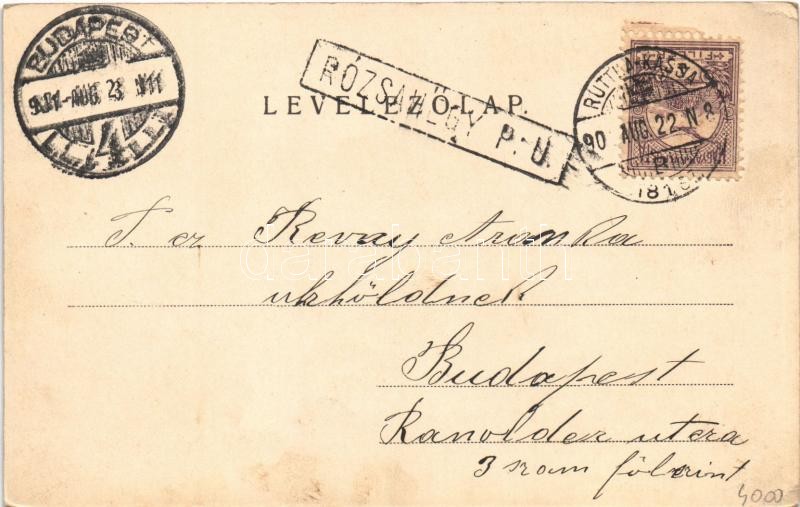 BUDAPEST
901-AUG 23 N11
4
RÓZSAHEGY P. U.
LEVELEZŐLAP.
FILL
RUTTKA-KASSA
90 AUG 22 N 8
B
181
T. cz Revay Aranka
urhöldnek
Budapest
Ranolder utcza
3 szám földszint
4000
darabanth